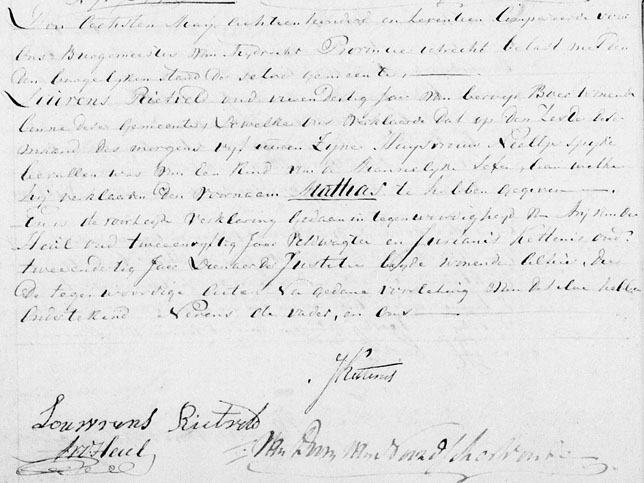 Den achtsten Meij achtienhonderd en zeventien Compareerde voor
ons Burgemeester van Mijdrecht Provincie utrecht belast met den
den burgelijken stand der selve gemeente,
Lourens Rietveld oud vierendertig Jaar van beroep Boer wonende
benne dese Gemeente, dewelke ons verklaarde dat op den Zesde deser
maand des morgens vijf uuren Zijne Huysvrouw Neeltje Spijker
bevallen was van Een kind van de Mannelyke Sexe, aan welke
hij verklaarde den voornaam Mathias te hebben gegeven
En is de voorsegde verklaring gedaan in tegenwoordigheyd van Arij van der
Heul oud tweeenvijftig Jaar Veldwagter en Jurianis Kettenis oud
tweeendertig Jaar Dienaar der Justitie beyde wonende alhier, die
De tegenwoordige acten na gedane voorlesing van deselve hebben
Onderteekend Nevens de vader, en ons
JKettenis
Louwrens Rietveld
AvdHeul
Van